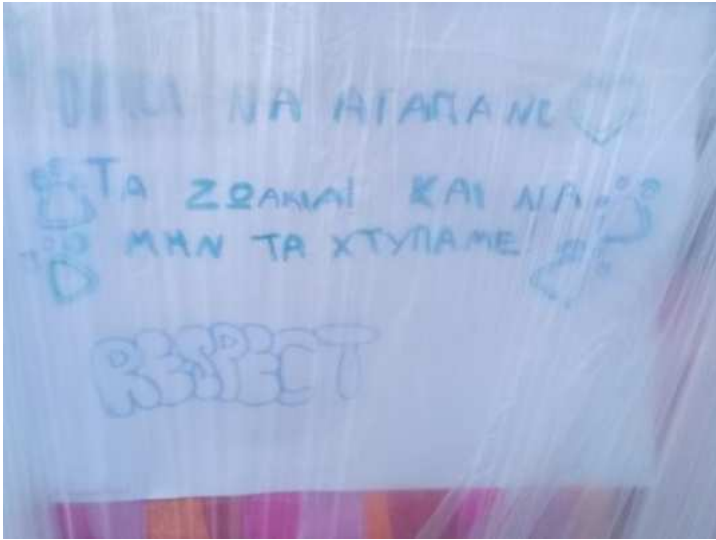 ΝΑ ΑΓΑΠΑΜΕ
ΤΑ ΖΩΑΚΙΑ! ΚΑΙ ΝΑ
ΜΗΝ ΤΑ ΧΤΥΠΑΜΕ!
RESPECT